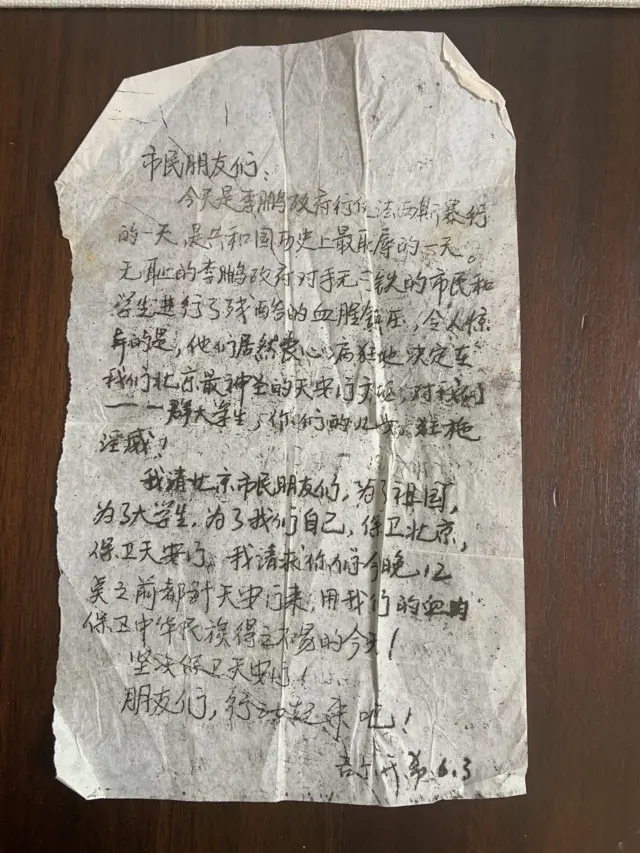 市民朋友们:
今天是李鹏政府行使法西斯暴行
的一天,是共和国历史上最耻辱的一天。
无耻的李鹏政府对手无寸铁的市民和
学生进行了残酷的血腥镇压,令人惊
奇的是,他们居然丧心病狂地决定在
我们北京最神圣的天安门广场,对我们
一群大学生,你们的儿女,狂施
淫威!
我请北京市民朋友们,为了祖国,
为了大学生,为了我们自己,保卫北京,
保卫天安门。我请求你们今晚12
点之前都到天安门来,用我们的血肉
保卫中华民族得之不易的今天!
坚决保卫天安门!
朋友们,行动起来吧!
6.3